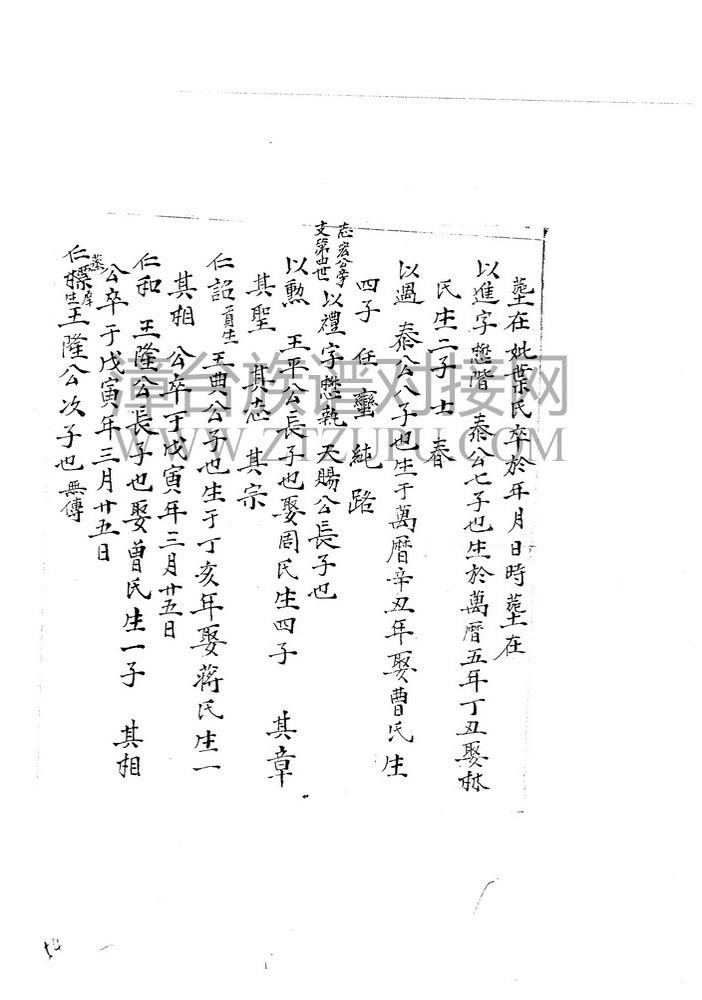 塟在妣葉氏卒於年月日時塟在
以進字懋階 泰公七子也生於萬曆五年丁丑娶林
氏生二子 士 春
以過 泰公八子也生于萬曆辛丑年娶曹氏生
四子 任 蠻 純 路
志宏公字
支第四世
以禮字懋執 天賜公長子也
以勲 王平公長子也娶周氏生四子 其章
其聖 其志 其宗
仁詔貢生 王典公子也生于丁亥年娶蔣氏生一
其相 公卒于戊寅年三月廿五日
仁和 王隆公長子也娶曾氏生一子 其相
公卒于戊寅年三月廿五日
仁標 庠生 王隆公次子也無傳
漳台族谱对接网
WWW.ZTZUPU.COM
54